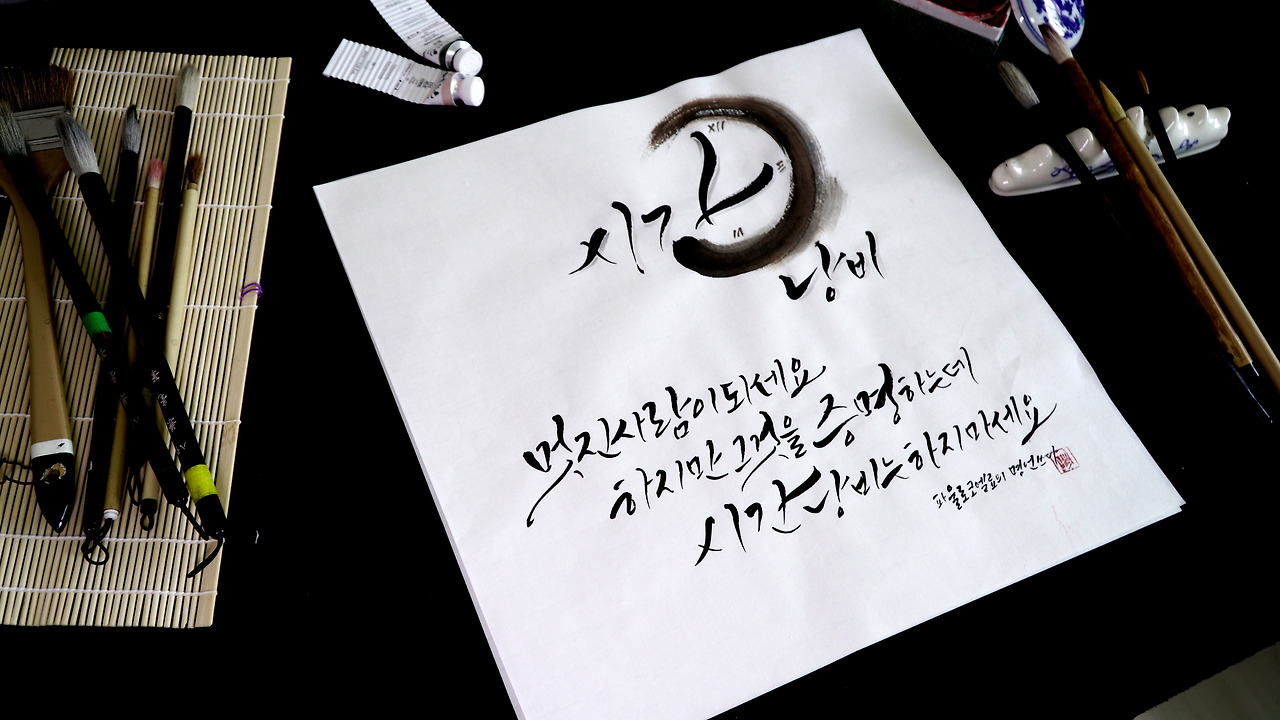 시간
XII
III
VI
낭비
멋진사람이되세요
하지만 그것을 증명하는데
시간낭비는하지마세요
파울로코엘료의 명언쓰다